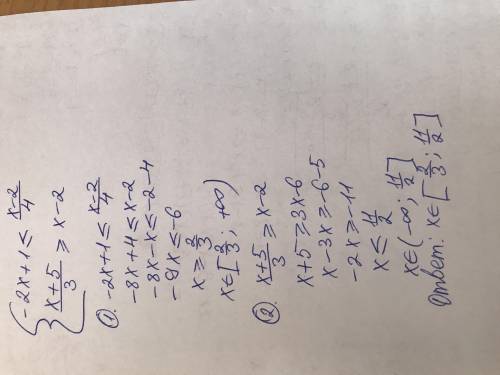 { -2x+1 ≤ (x-2)/4
{ (x+5)/3 ≥ x-2
①. -2x+1 ≤ (x-2)/4
-8x+4 ≤ x-2
-8x-x ≤ -2-4
-9x ≤ -6
x ≥ 2/3
x∈[2/3; +∞)
②. (x+5)/3 ≥ x-2
x+5 ≥ 3x-6
x-3x ≥ -6-5
-2x ≥ -11
x ≤ 11/2
x∈(-∞; 11/2]
Ответ: x∈[2/3; 11/2]